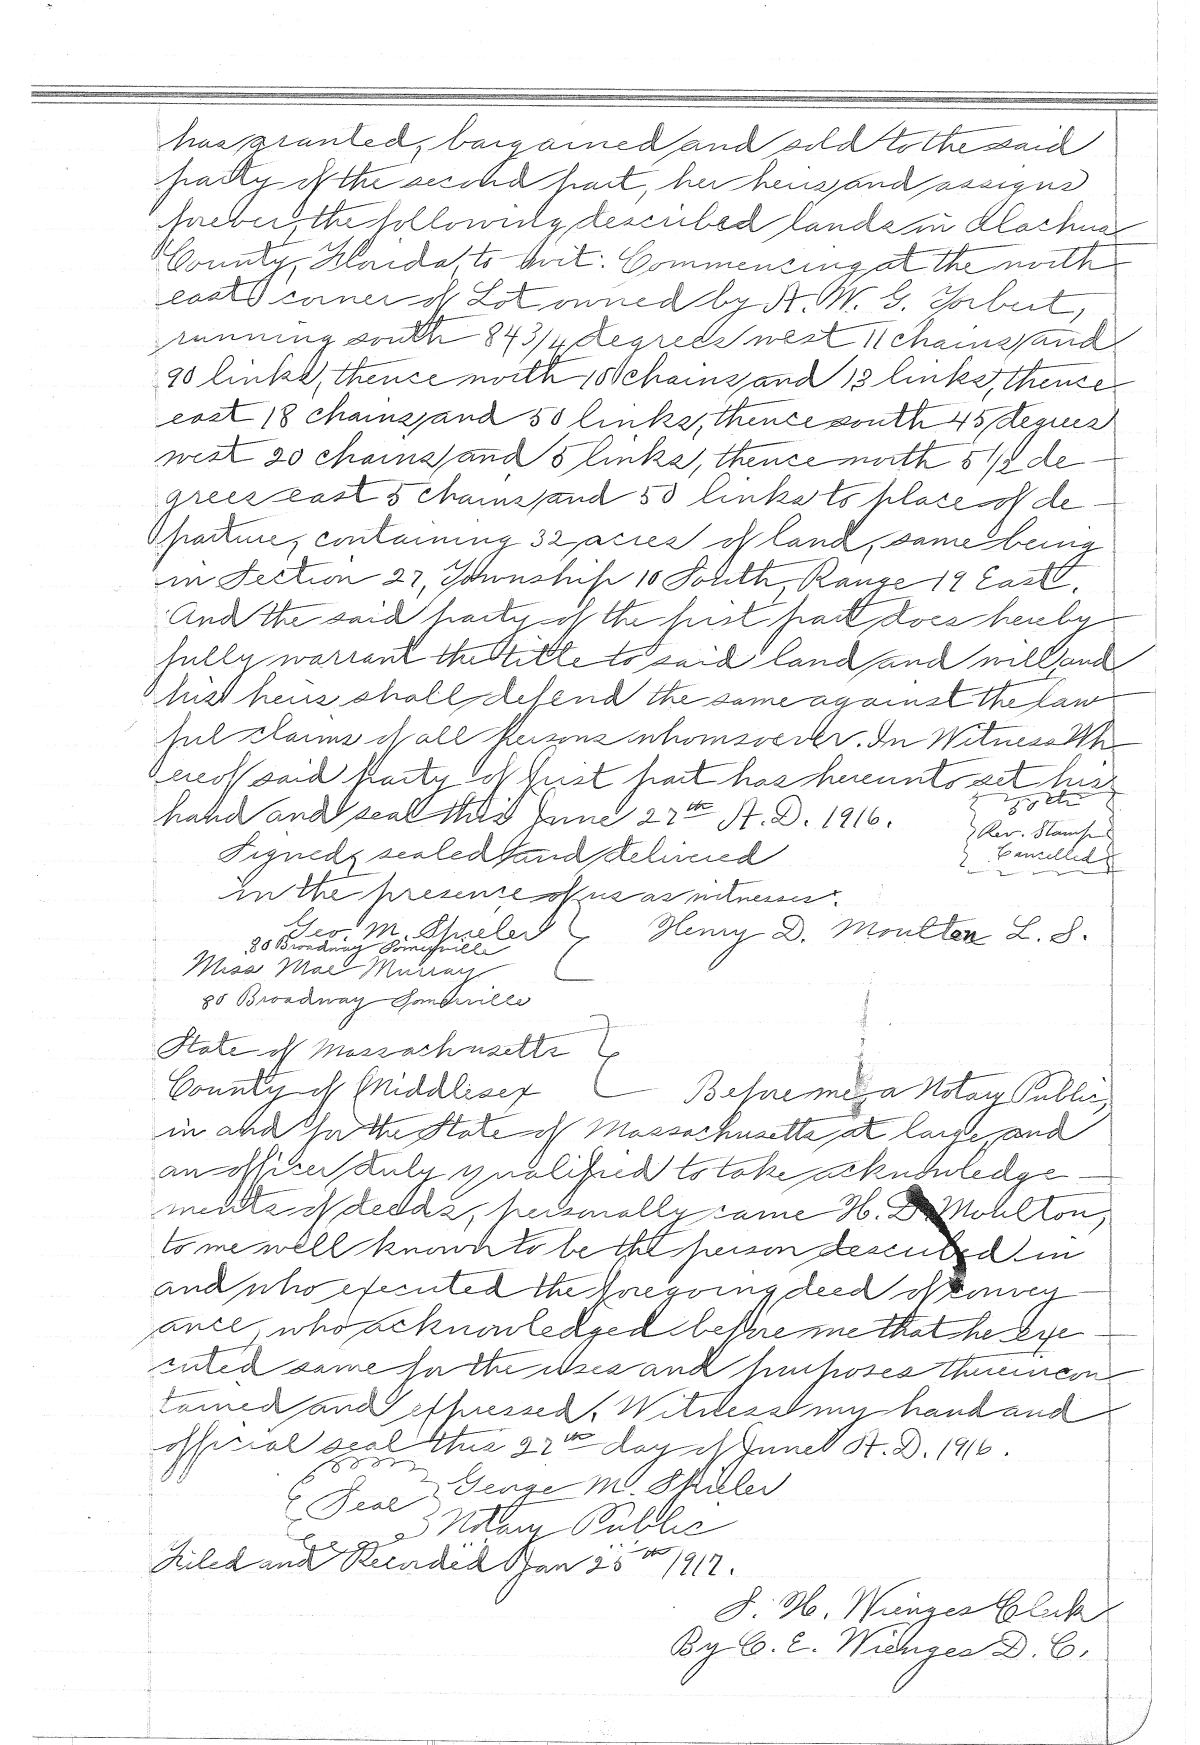 has granted, bargained and sold to the said
party of the second part, her heirs and assigns
forever, the following described lands in Alachua
County, Florida, to wit: Commencing at the north
east corner of Lot owned by A. W. G. Torbert,
running south 84 3/4 degrees west 11 chains and
90 links, thence north 10 chains and 13 links, thence
east 18 chains and 50 links, thence south 45 degrees
west 20 chains and 5 links, thence north 5 1/2 de-
grees east 5 chains and 50 links to place of de-
parture, containing 32 acres of land, same being
in Section 27, Township 10 South, Range 19 East.
And the said party of the first part does hereby
fully warrant the title to said land and will, and
his heirs shall defend the same against the law
ful claims of all persons whomsoever. In Witness Wh
ereof said party of first part has hereunto set his
hand and seal this June 27th A. D. 1916.
50 cts
Rev. Stamp
Cancelled
Signed, sealed and delivered
in the presence of us as witnesses:
Geo. M. Shieler Henry D. Moulton L. S.
80 Broadway Somerville
Miss Mae Murray
80 Broadway Somerville
State of Massachusetts
County of Middlesex Before me, a Notary Public,
in and for the State of Massachusetts at large, and
an officer duly qualified to take acknowledge-
ments of deeds, personally came H. D. Moulton,
to me well known to be the person described in
and who executed the foregoing deed of convey
ance, who acknowledged before me that he exe-
cuted same for the uses and purposes therein con
tained and expressed. Witness my hand and
official seal this 27th day of June A. D. 1916.
Seal George M. Shieler
Notary Public
Filed and Recorded Jan 25th 1917.
S. H. Wienges Clerk
By C. E. Wienges D. C.